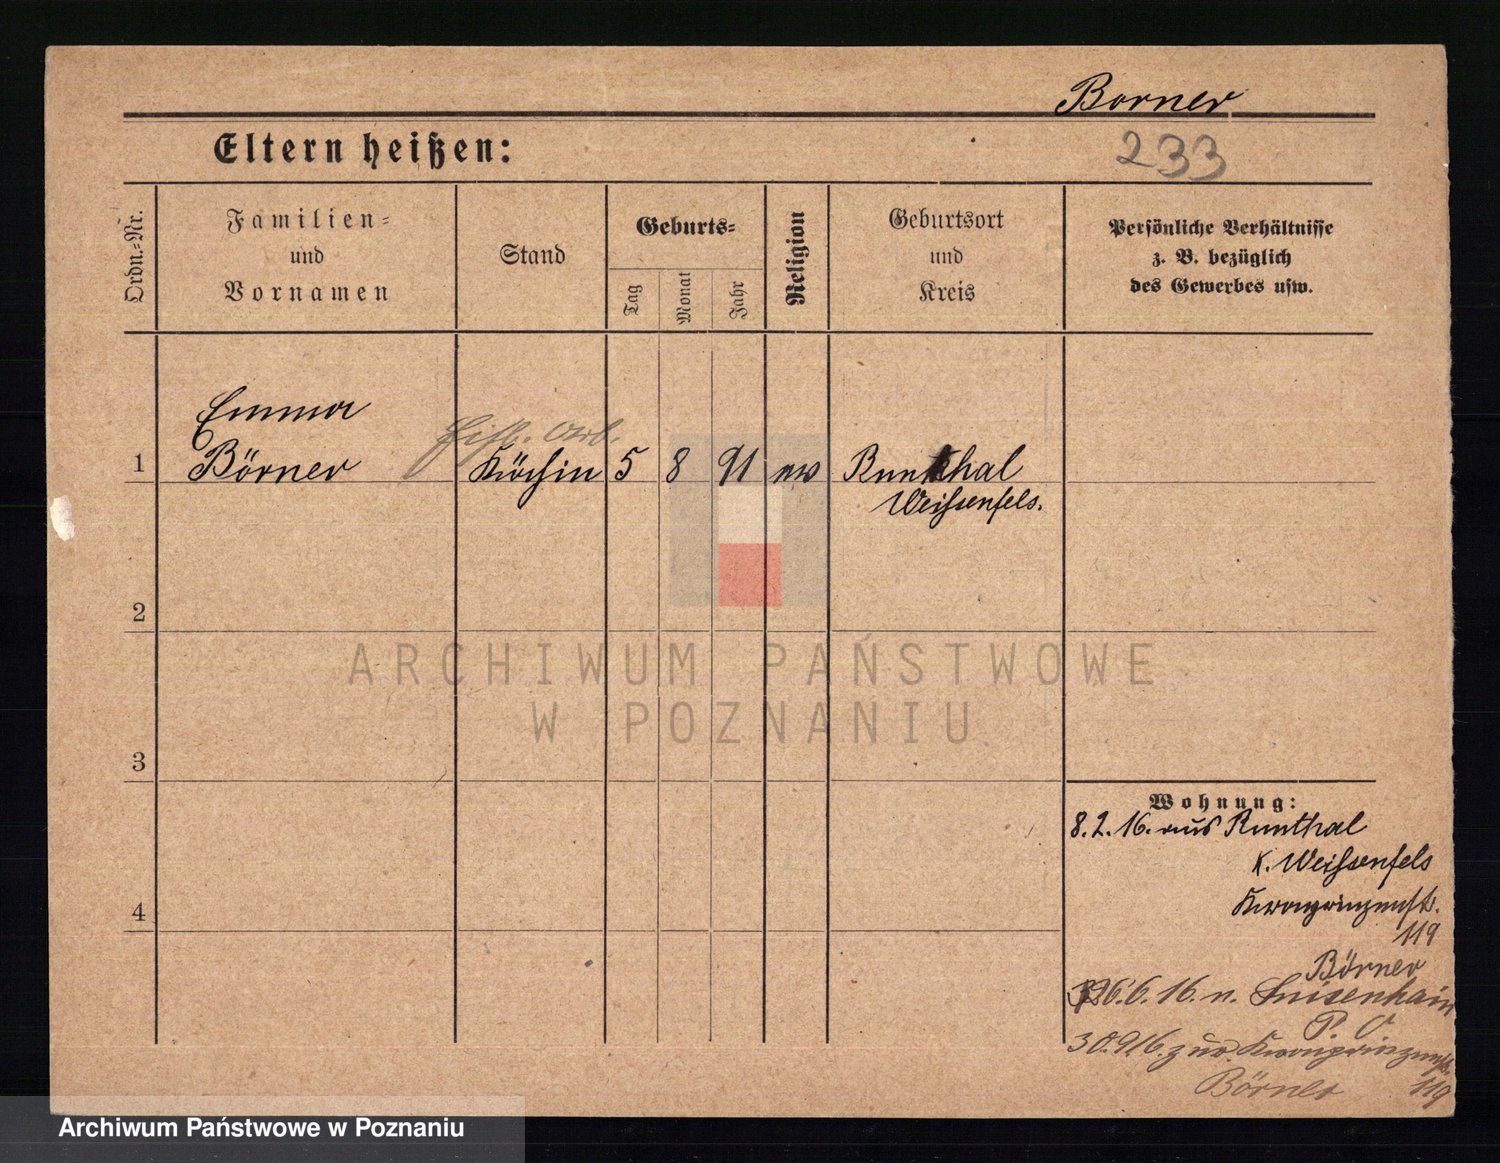 Borner
Eltern heißen:
233
Ordn.-Nr.
Familien-
und
Vornamen
Stand
Geburts-
Tag
Monat
Jahr
Religion
Geburtsort
und
Kreis
Persönliche Verhältnisse
z. B. bezüglich
des Gewerbes usw.
Emma
1 Börner Köchin 5 8 91 ew Runthal
Weißenfels.
2
ARCHIWUM PAŃSTWOWE
W POZNANIU
3
Wohnung:
8.2.16. aus Runthal
K. Weißenfels
4
Kronprinzenstr.
119
Börner
26.6.16. n. Luisenhain
P. O
30.9.16. zur. Kronprinzenstr.
Börner 119
Archiwum Państwowe w Poznaniu